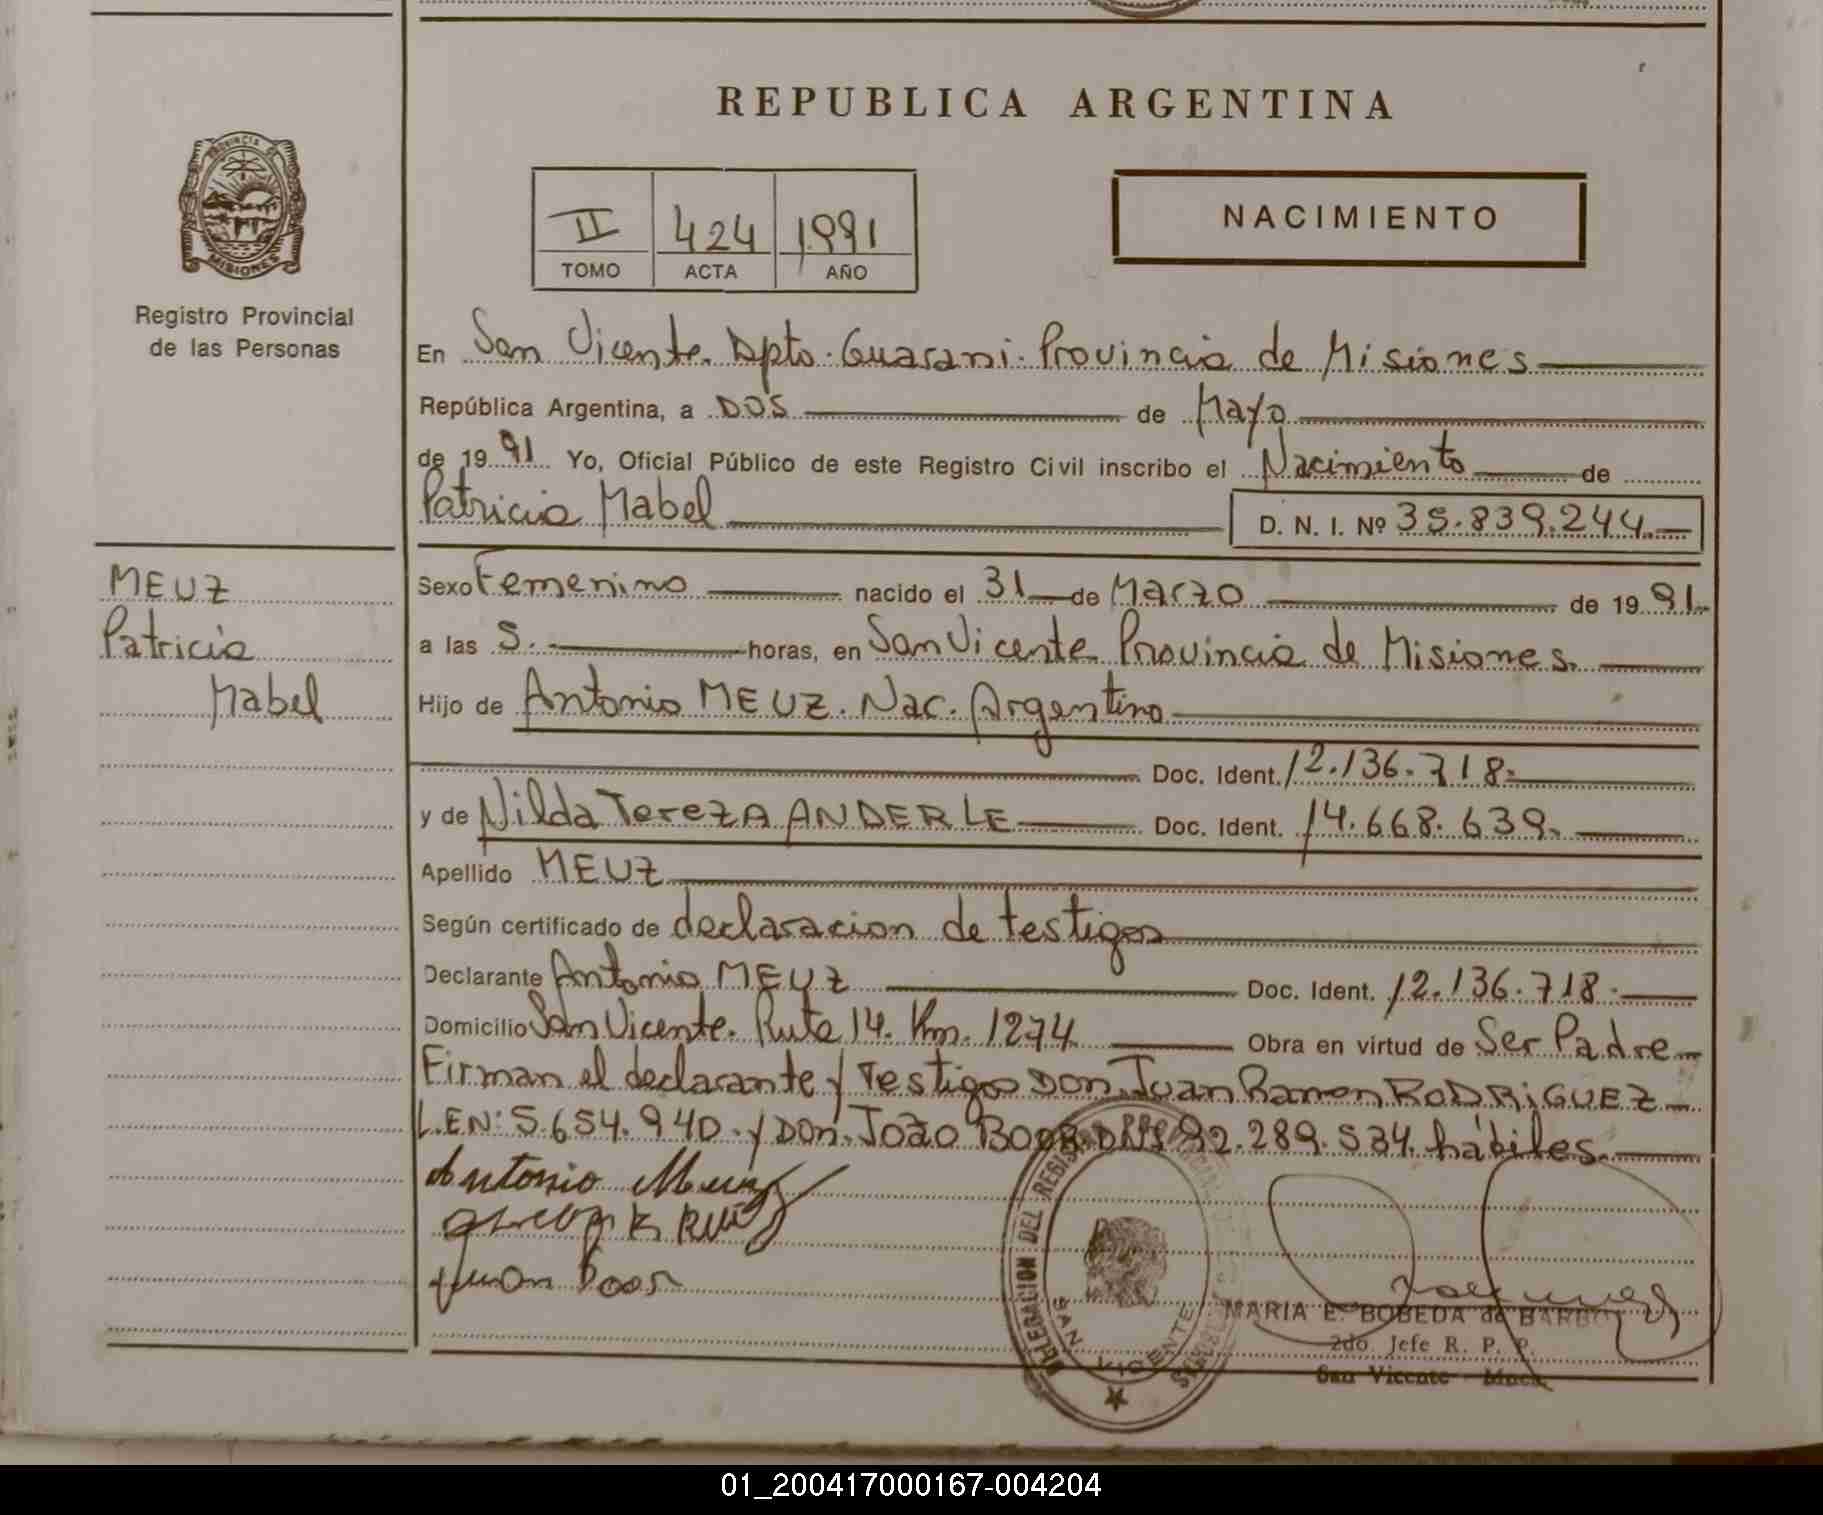 REPUBLICA ARGENTINA
PROVINCIA DE
MISIONES
Registro Provincial
de las Personas
II 424 1991
TOMO ACTA AÑO
NACIMIENTO
En San Vicente. Dpto. Guarani. Provincia de Misiones
República Argentina, a DOS de Mayo
de 1991 Yo, Oficial Público de este Registro Civil inscribo el Nacimiento de
Patricia Mabel D. N. I. Nº 35.839.244.
MEUZ
Patricia
Mabel
Sexo Femenino nacido el 31 de Marzo de 1991.
a las 5. horas, en San Vicente Provincia de Misiones.
Hijo de Antonio MEUZ. Nac. Argentino
Doc. Ident. 12.136.718.
y de Nilda TerezA ANDERLE Doc. Ident. 14.668.639.
Apellido MEUZ
Según certificado de declaracion de testigos
Declarante Antonio MEUZ Doc. Ident. 12.136.718.
Domicilio San Vicente. Ruta 14. Km. 1274 Obra en virtud de Ser Padre
Firman el declarante y Testigos Don. Juan Ramon RODRiGUEZ
L.EN: 5.654.940. y Don. João 92.289.534. hábiles.
Antonio Meuz
DELEGACION DEL
SAN VICENTE
MARIA E. BOBEDA de
2do. Jefe R. P. P.
San Vicente
01_200417000167-004204